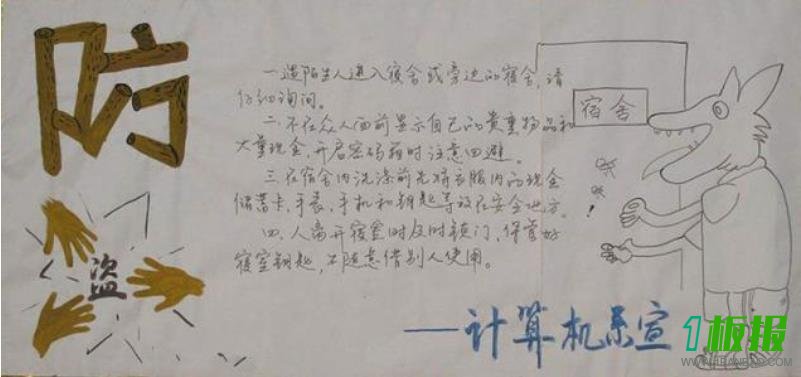 防
盗
一.遇陌生人进入宿舍或旁边的宿舍,请
仔细询问。
二.不在众人面前显示自己的貴重物品和
大量现金,开启密码箱时注意回避。
三.在宿舍内洗涤前先将衣服内的现金
储蓄卡、手表、手机和钥匙等放在安全地方。
四.人离开寝室时及时锁门,保管好
寝室钥匙,不随意借别人使用。
宿舍
!
——计算机系宣
1板报
WWW.1BANBAO.COM